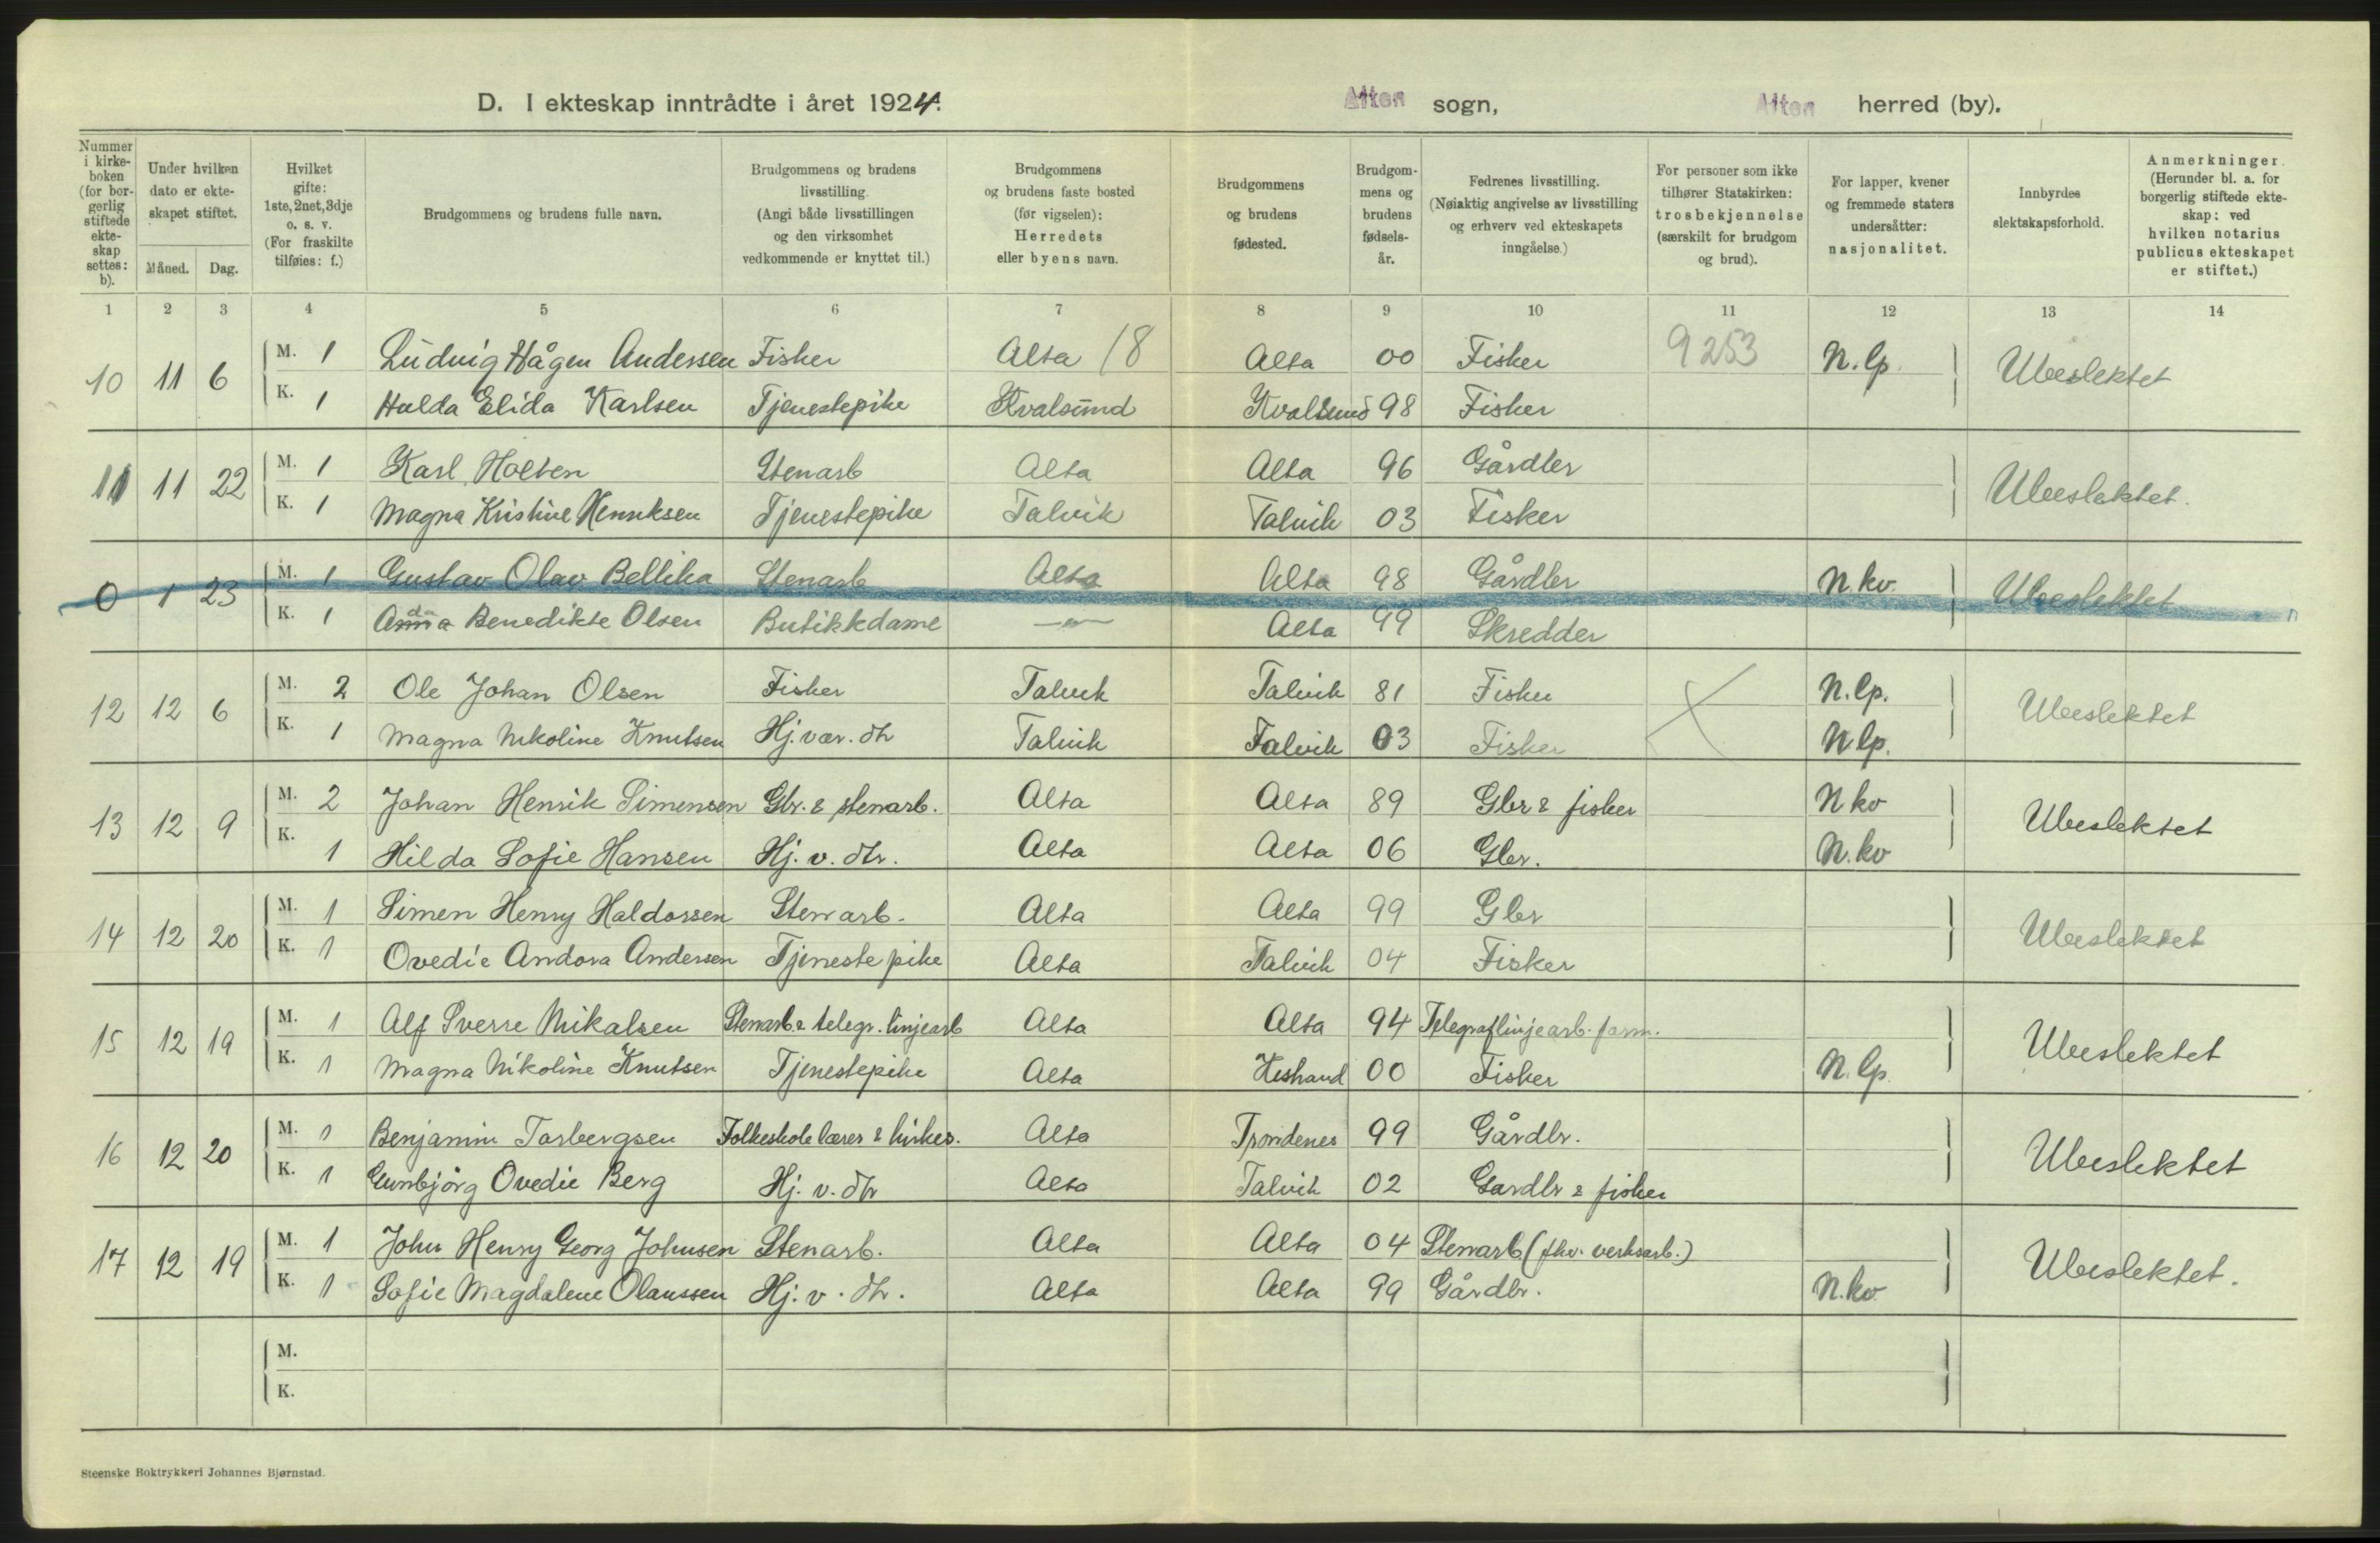 D. I ekteskap inntrådte i året 1924.
Alten sogn,
Alten herred (by).
Nummer i kirkeboken (for borgerlig stiftede ekteskap settes: b).
Under hvilken dato er ekteskapet stiftet.
Måned. Dag.
Hvilket gifte: 1ste, 2net, 3dje o. s. v. (For fraskilte tilføies: f.)
Brudgommens og brudens fulle navn.
Brudgommens og brudens livsstilling. (Angi både livsstillingen og den virksomhet vedkommende er knyttet til.)
Brudgommens og brudens faste bosted (før vigselen): Herredets eller byens navn.
Brudgommens og brudens fødested.
Brudgommens og brudens fødselsår.
Fedrenes livsstilling. (Nøiaktig angivelse av livsstilling og erhverv ved ekteskapets inngåelse.)
For personer som ikke tilhører Statskirken: trosbekjennelse (særskilt for brudgom og brud).
For lapper, kvener og fremmede staters undersåtter: nasjonalitet.
Innbyrdes slektskapsforhold.
Anmerkninger. (Herunder bl. a. for borgerlig stiftede ekteskap: ved hvilken notarius publicus ekteskapet er stiftet.)
1 2 3 4 5 6 7 8 9 10 11 12 13 14
10 11 6 M. 1 Ludvig Hågen Andersen Fisker Alta 18 Alta 00 Fisker 9253 N. lp. Ubeslektet
K. 1 Hulda Elida Karlsen Tjenestepike Kvalsund Kvalsund 98 Fisker
11 11 22 M. 1 Karl Holten Stenarb Alta Alta 96 Gårdbr Ubeslektet.
K. 1 Magna Kristine Henriksen Tjenestepike Talvik Talvik 03 Fisker
0 1 23 M. 1 Gustav Olav Bellika Stenarb Alta Alta 98 Gårdbr N. kv. Ubeslektet
K. 1 Benedikte Olsen Butikkdame —"— Alta 99 Skredder
12 12 6 M. 2 Ole Johan Olsen Fisker Talvik Talvik 81 Fisker N. lp. Ubeslektet
K. 1 Magna Nikoline Knutsen Hj. vær. dtr Talvik Talvik 03 Fisker N. lp.
13 12 9 M. 2 Johan Henrik Simensen Gbr. & stenarb. Alta Alta 89 Gbr & fisker N kv Ubeslektet
K. 1 Hilda Sofie Hansen Hj. v. dtr. Alta Alta 06 Gbr. N. kv
14 12 20 M. 1 Simen Henry Haldorsen Stenarb. Alta Alta 99 Gbr Ubeslektet
K. 1 Ovedie Andora Andersen Tjenestepike Alta Talvik 04 Fisker
15 12 19 M. 1 Alf Sverre Mikalsen Stenarb & telegr. linjearb Alta Alta 94 Telegraflinjearb. Ubeslektet
K. 1 Magna Nikoline Knutsen Tjenestepike Alta 00 Fisker N. lp.
16 12 20 M. 1 Benjamin Torbergsen Folkeskolelærer & kirkes. Alta Trondenes 99 Gårdbr. Ubeslektet
K. 1 Gunbjörg Ovedie Berg Hj. v. dtr Alta Talvik 02 Gardbr & fisker
17 12 19 M. 1 John Henry Georg Johnsen Stenarb. Alta Alta 04 Stenarb (fhv. verksarb.) Ubeslektet.
K. 1 Sofie Magdalene Olaussen Hj. v. dtr. Alta Alta 99 Gårdbr. N. kv.
M.
K.
Steenske Boktrykkeri Johannes Bjørnstad.